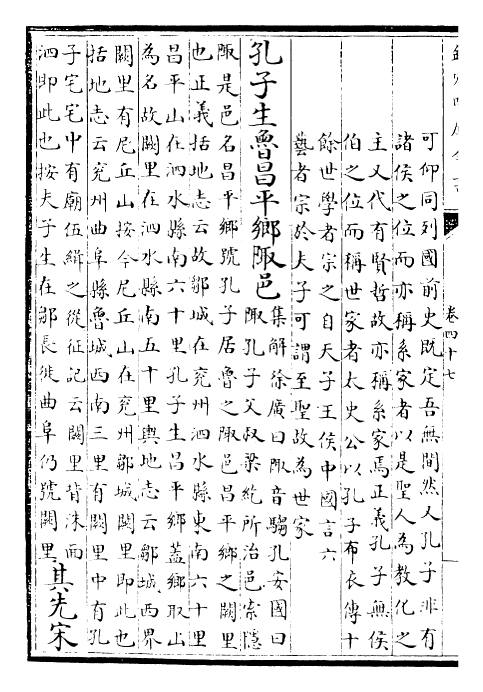 卷四十七
可仰同列國前史既定吾無間然又孔子非有
諸侯之位而亦稱系家者以是聖人為教化之
主又代有賢哲故亦稱系家焉正義孔子無侯
伯之位而稱世家者太史公以孔子布衣傳十
餘世學者宗之自天子王侯中國言六
藝者宗於夫子可謂至聖故為世家
孔子生魯昌平鄉陬邑
集解徐廣曰陬音騶孔安國曰
陬孔子父叔梁紇所治邑索隱
陬是邑名昌平鄉號孔子居魯之陬邑昌平鄉之闕里
也正義括地志云故鄒城在兗州泗水縣東南六十里
昌平山在泗水縣南六十里孔子生昌平鄉蓋鄉取山
為名故闕里在泗水縣南五十里輿地志云鄒城西界
闕里有尼丘山按今尼丘山在兗州鄒城闕里即此也
括地志云兗州曲阜縣魯城西南三里有闕里中有孔
子宅宅中有廟伍緝之從征記云闕里背洙面
泗即此也按夫子生在鄒長徙曲阜仍號闕里
其先宋